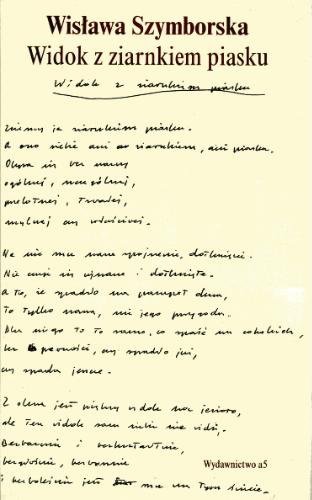 Wisława Szymborska
Widok z ziarnkiem piasku
Widok z ziarnkiem piasku
Zwiemy je ziarnkiem piasku.
A ono siebie ani ziarnkiem, ani piasku.
Obywa się bez nazwy
ogólnej, szczególnej,
przelotnej, trwałej,
mylnej czy właściwej.
Na nic mu nasze spojrzenie, dotknięcie.
Nie czuje się ujrzane i dotknięte.
A to, że spadło na parapet okna,
to tylko nasza, nie jego przygoda.
Dla niego to to samo, co spaść na cokolwiek,
bez pewności, czy spadło już,
czy spada jeszcze.
Z okna jest piękny widok na jezioro,
ale ten widok sam siebie nie widzi.
Bezbarwnie i bezkształtnie,
bezgłośnie, bezwonnie
i bezboleśnie jest mu na tym świecie.
Wydawnictwo a5